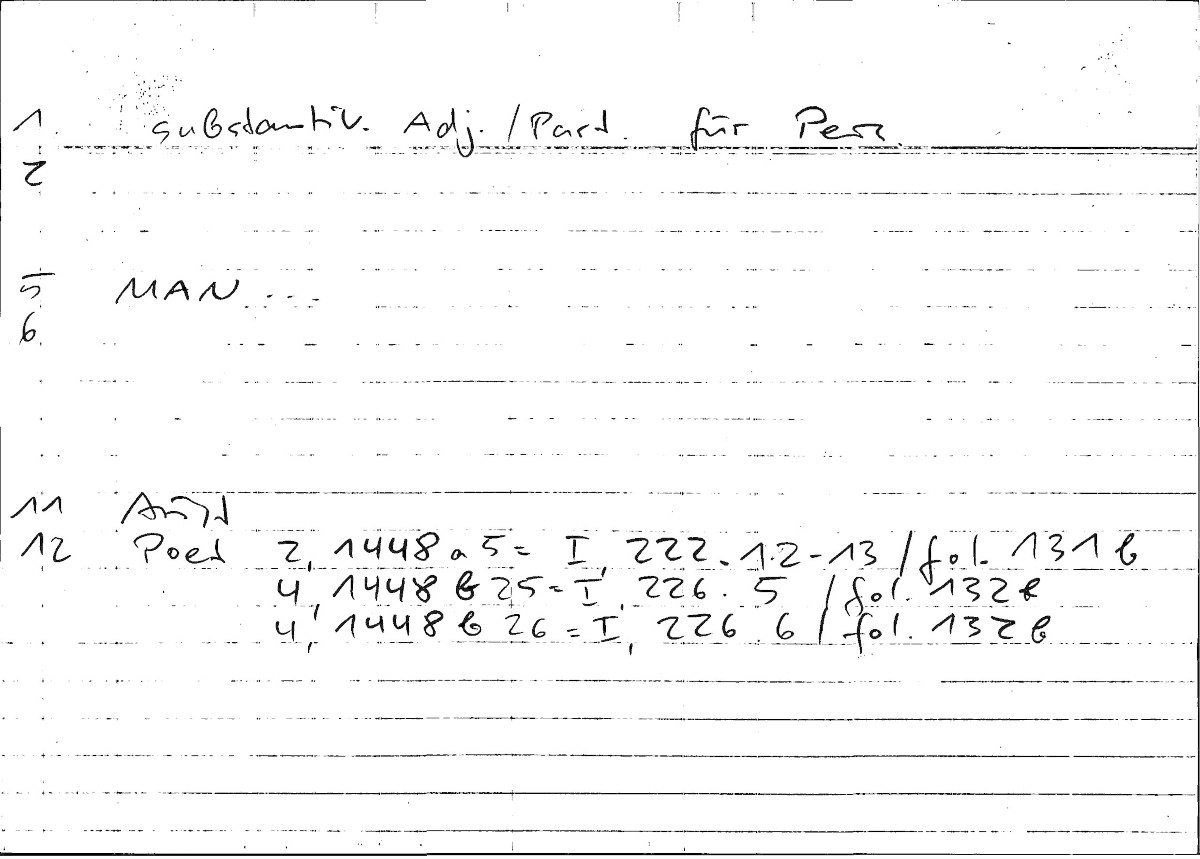 1 substantiv. Adj. / Part. für Pers.
2
5 MAN ...
6
11 Arist
12 Poet 2, 1448 a 5 = I, 222.12-13 / fol. 131 b
4, 1448 b 25 = I, 226.5 / fol. 132 b
4, 1448 b 26 = I, 226.6 / fol. 132 b